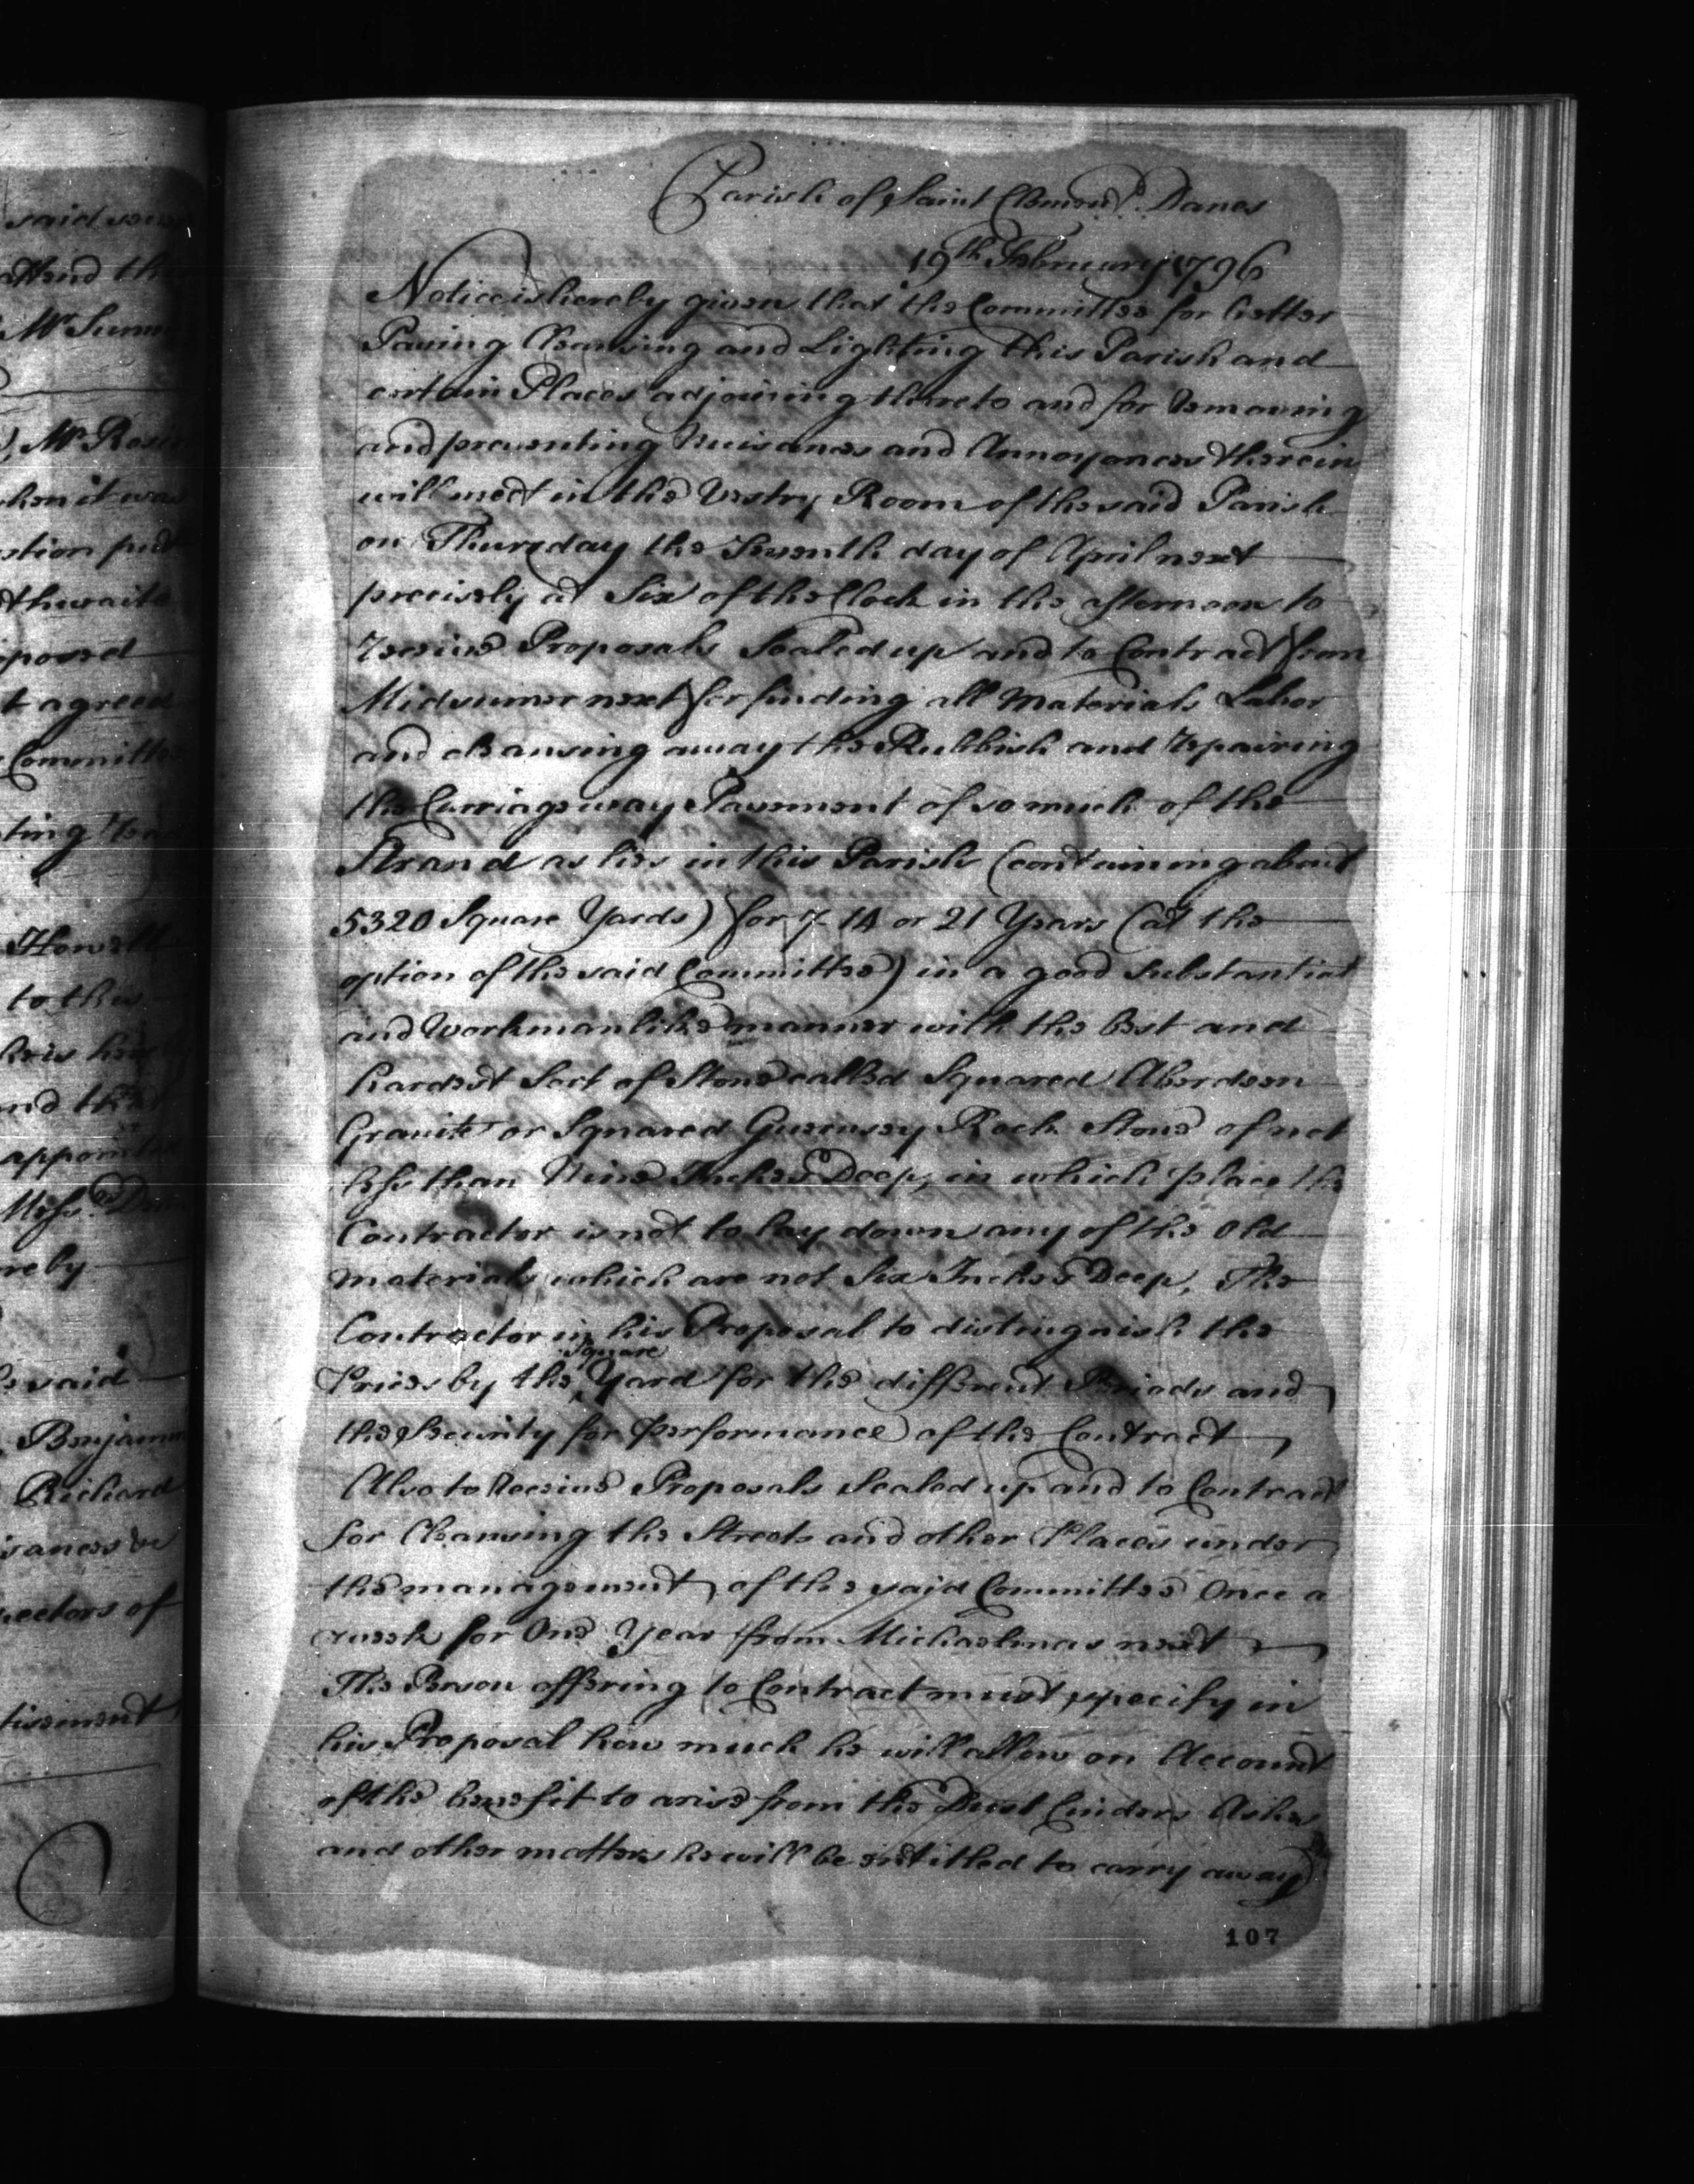 Parish of Saint Clement Danes
19th February 1796
Notice is hereby given that the Committee for better
Paving Cleansing and Lighting this Parish and
certain Places adjoining thereto and for removing
and preventing Nuisances and Annoyances therein
will meet in the Vestry Room of the said Parish
on Thursday the Seventh day of April next
precisely at Six of the Clock in the afternoon to
receive Proposals Sealed up and to Contract from
Midsumer next for finding all Materials Labor
and cleansing away the Rubbish and repairing
the Carriageway Pavement of so much of the
Strand as lies in this Parish (containing about
5320 Square Yards) for 7 14 or 21 Years (at the
option of the said Committee) in a good Substantial
and Workmanlike manner with the best and
hardest Sort of Stone called Squared Aberdeen
Granite or Squared Guernsey Rock Stone of not
less than Nine Inches Deep, in which place the
Contractor is not to lay down any of the Old
materials which are not Six Inches Deep, The
Contractor in his Proposal to distinguish the
Square
Prices by the Yard for the different Periods and
the Security for Performance of the Contract
Also to receive Proposals Sealed up and to Contract
for Cleansing the Streets and other Places under
the management of the said Committee Once a
week for One Year from Michaelmas next
The Person offering to Contract must specify in
his Proposal how much he will allow on Account
of the benefit to arise from the Dust Cinders Ashes
and other matters he will be entitled to carry away
107
said
attend the
Mr
Mr
when it was
posed
t agreed
Committee
ting
Howell
to this
appointed
reby
said
Benjamin
Richard
ectors of
tisement